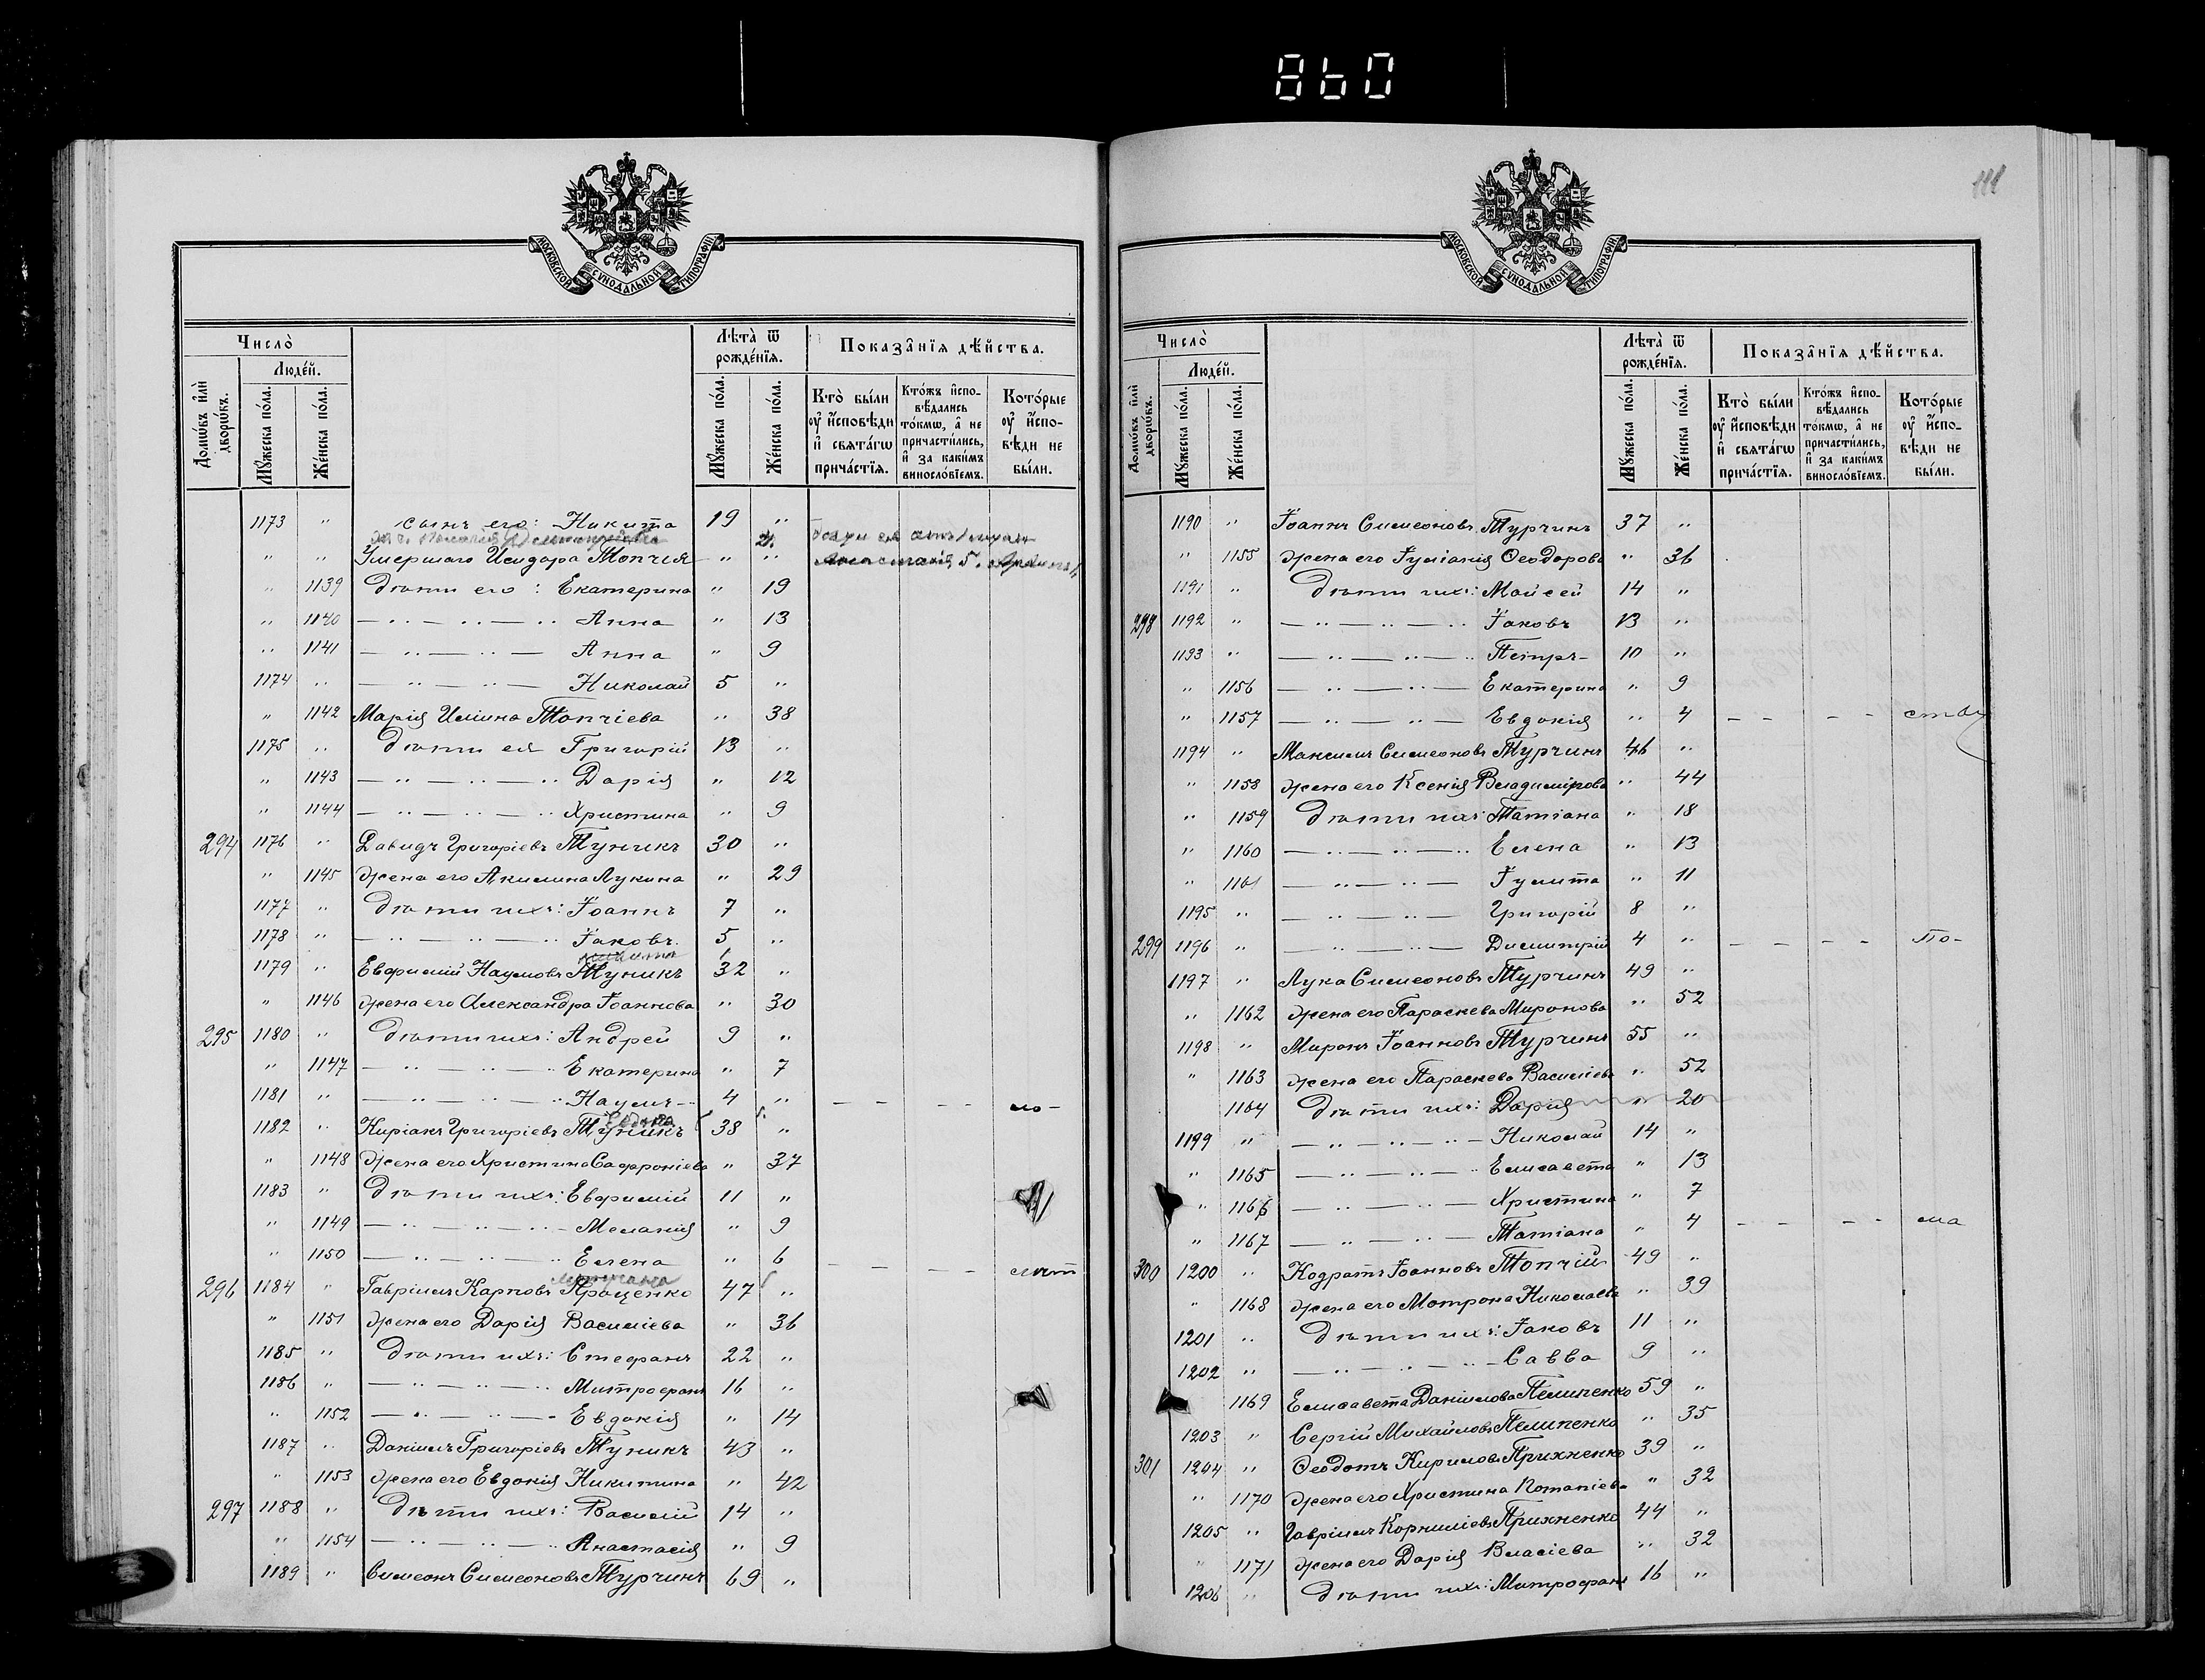 860
111
МОСКОВСКОЙ СѴНОДАЛЬНОЙ ТИПОГРАФІИ
Число̀
Людéй.
Домѡ́въ и҆лѝ дворѡ́въ.
Мꙋ́жеска по́ла.
Же́нска по́ла.
Лѣ́та ѿ рождéнїѧ.
Мꙋ́жеска по́ла.
Же́нска по́ла.
Показа̑нїѧ дѣ́йства.
Кто̀ бы́ли ᲂу҆ и҆́сповѣди и҆ свѧта́гѡ прича́стїѧ.
Кто́жъ и҆спо-вѣ́дались то́кмѡ, а҆ не причасти́лись, и҆ за каки́мъ виносло́вїемъ.
Кото́рые ᲂу҆ и҆́спо-вѣди не бы́ли.
1173 " сынъ его: Никита 19 "
" " Умершаго Исидора Топчія " "
" 1139 дѣти его: Екатерина " 19
" 1140 — " — " — " Анна " 13
" 1141 — " — " — Анна " 9
1174 " — " — " — Николай 5 "
" 1142 Марія Иліина Топчіева " 38
1175 " дѣти ея Григорій 13 "
" 1143 — " — " — " Дарія " 12
" 1144 — " — " — " Христина " 9
294 1176 " Давидъ Григоріевъ Туникъ 30 "
" 1145 жена его Акилина Лукина " 29
1177 " дѣти ихъ: Іоаннъ 7 "
1178 " — " — " — " Іаковъ 5 "
1179 " Евфимій Наумовъ Туникъ 32 "
" 1146 жена его Александра Іоаннова " 30
295 1180 " дѣти ихъ: Андрей 9 "
" 1147 — " — " — " Екатерина " 7
1181 " — " — " — " Наумъ 4 " — — — — ло-
1182 " Киріакъ Григоріевъ Туникъ 38 "
" 1148 жена его Христина Сафроніева " 37
1183 " дѣти ихъ: Евфимій 11 "
" 1149 — " — " — " Меланія " 9
" 1150 — " — " — " Елена " 6 — — — — лѣт
296 1184 " Гавріилъ Карповъ Проценко 47 "
" 1151 жена его Дарія Василіева " 36
1185 " дѣти ихъ: Стефанъ 22 "
1186 " — " — " — " Митрофанъ 16 "
" 1152 — " — " — " Евдокія " 14
1187 " Даніилъ Григоріевъ Туникъ 43 "
" 1153 жена его Евдокія Никитина " 42
297 1188 " дѣти ихъ: Василій 14 "
" 1154 — " — " — " Анастасія " 9
1189 " Симеонъ Симеоновъ Турчинъ 69 "
МОСКОВСКОЙ СѴНОДАЛЬНОЙ ТИПОГРАФІИ
Число̀
Людéй.
Домѡ́въ и҆лѝ дворѡ́въ.
Мꙋ́жеска по́ла.
Же́нска по́ла.
Лѣ́та ѿ рождéнїѧ.
Мꙋ́жеска по́ла.
Же́нска по́ла.
Показа̑нїѧ дѣ́йства.
Кто̀ бы́ли ᲂу҆ и҆́сповѣди и҆ свѧта́гѡ прича́стїѧ.
Кто́жъ и҆спо-вѣ́дались то́кмѡ, а҆ не причасти́лись, и҆ за каки́мъ виносло́вїемъ.
Кото́рые ᲂу҆ и҆́спо-вѣди не бы́ли.
1190 " Іоаннъ Симеоновъ Турчинъ 37 "
" 1155 жена его Іуліанія Ѳеодорова " 36
1191 " дѣти ихъ: Моисей 14 "
298 1192 " — " — " — " Іаковъ 13 "
1193 " — " — " — " Петръ 10 "
" 1156 — " — " — Екатерина " 9
" 1157 — " — " — Евдокія " 4 — — — — ству
1194 " Максимъ Симеоновъ Турчинъ 46 "
" 1158 жена его Ксенія Владимірова " 44
" 1159 дѣти ихъ: Татіана " 18
" 1160 — " — " — " Елена " 13
" 1161 — " — " — Іулита " 11
1195 " — " — " — Григорій 8 "
299 1196 " — " — " — Димитрій 4 " — — — — по-
1197 " Лука Симеоновъ Турчинъ 49 "
" 1162 жена его Параскева Миронова " 52
1198 " Миронъ Іоанновъ Турчинъ 55 "
" 1163 жена его Параскева Василіева " 52
1164 дѣти ихъ: Дарія " 20
1199 " — " — " — " Николай 14 "
" 1165 — " — " — " Елисавета " 13
" 1166 — " — " — Христина " 7
" 1167 — " — " — Татіана " 4 — — — — ма
300 1200 " Кодратъ Іоанновъ Топчій 49 "
" 1168 жена его Мотрона Николаева " 39
1201 " дѣти ихъ: Іаковъ 11 "
1202 " — " — " — " Савва 9 "
1169 Елисавета Даніилова Пелипенко 59 "
1203 " Сергій Михайловъ Пелипенко " 35
301 1204 " Ѳеодотъ Кириловъ Прихненко 39 "
" 1170 жена его Христина Потапіева " 32
1205 " Гавріилъ Корниліевъ Прихненко 44 "
" 1171 жена его Дарія Власіева " 32
1206 " дѣти ихъ: Митрофанъ 16 "